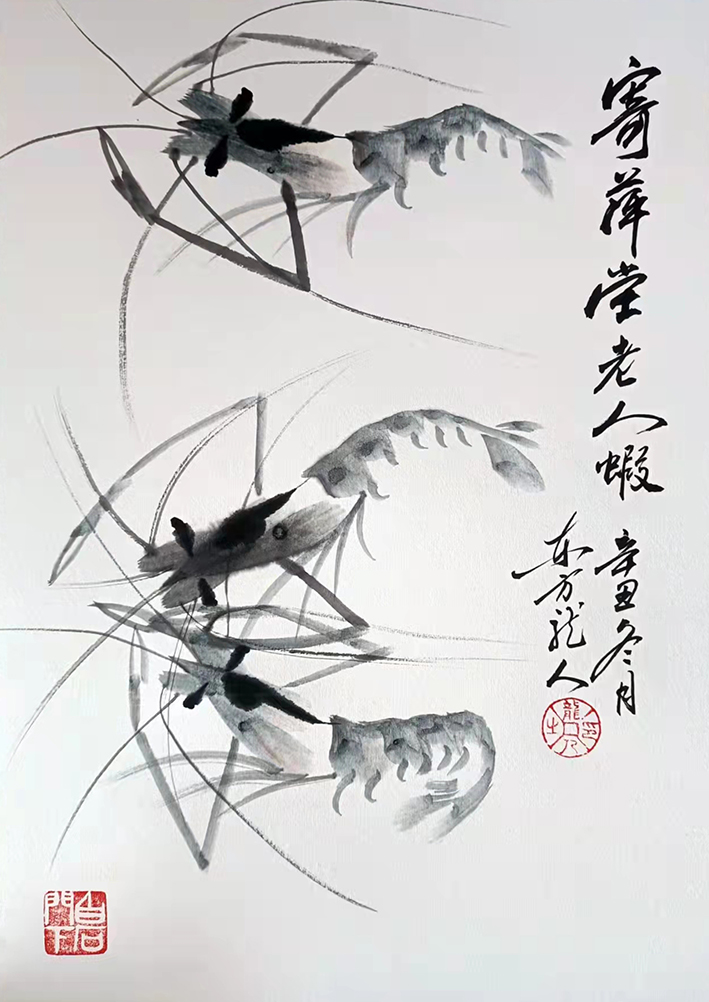 寄萍堂老人蝦
辛丑冬月
东方龙人